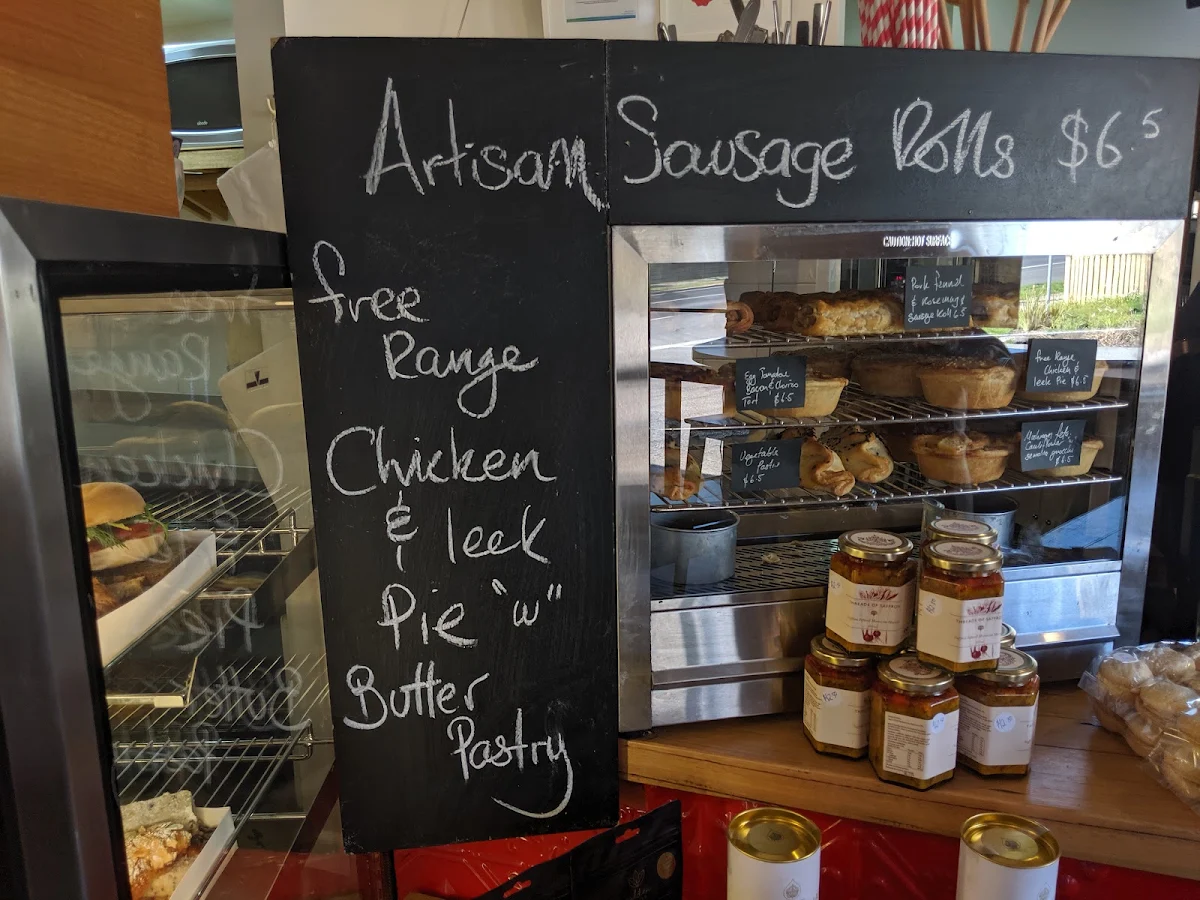 Artisan Sausage Rolls $6.5
free
Range
Chicken
& leek
Pie "w"
Butter
Pastry
CAUTION HOT SURFACE
Pork fennel
& Rosemary
Sausage Roll 6.5
Egg Tomatoe
Bacon & Chorizo
Tart $6.5
free Range
Chicken &
leek Pie $6.5
Vegetable
Pastie
$6.5
Cauliflower &
$6.5
THREADS OF